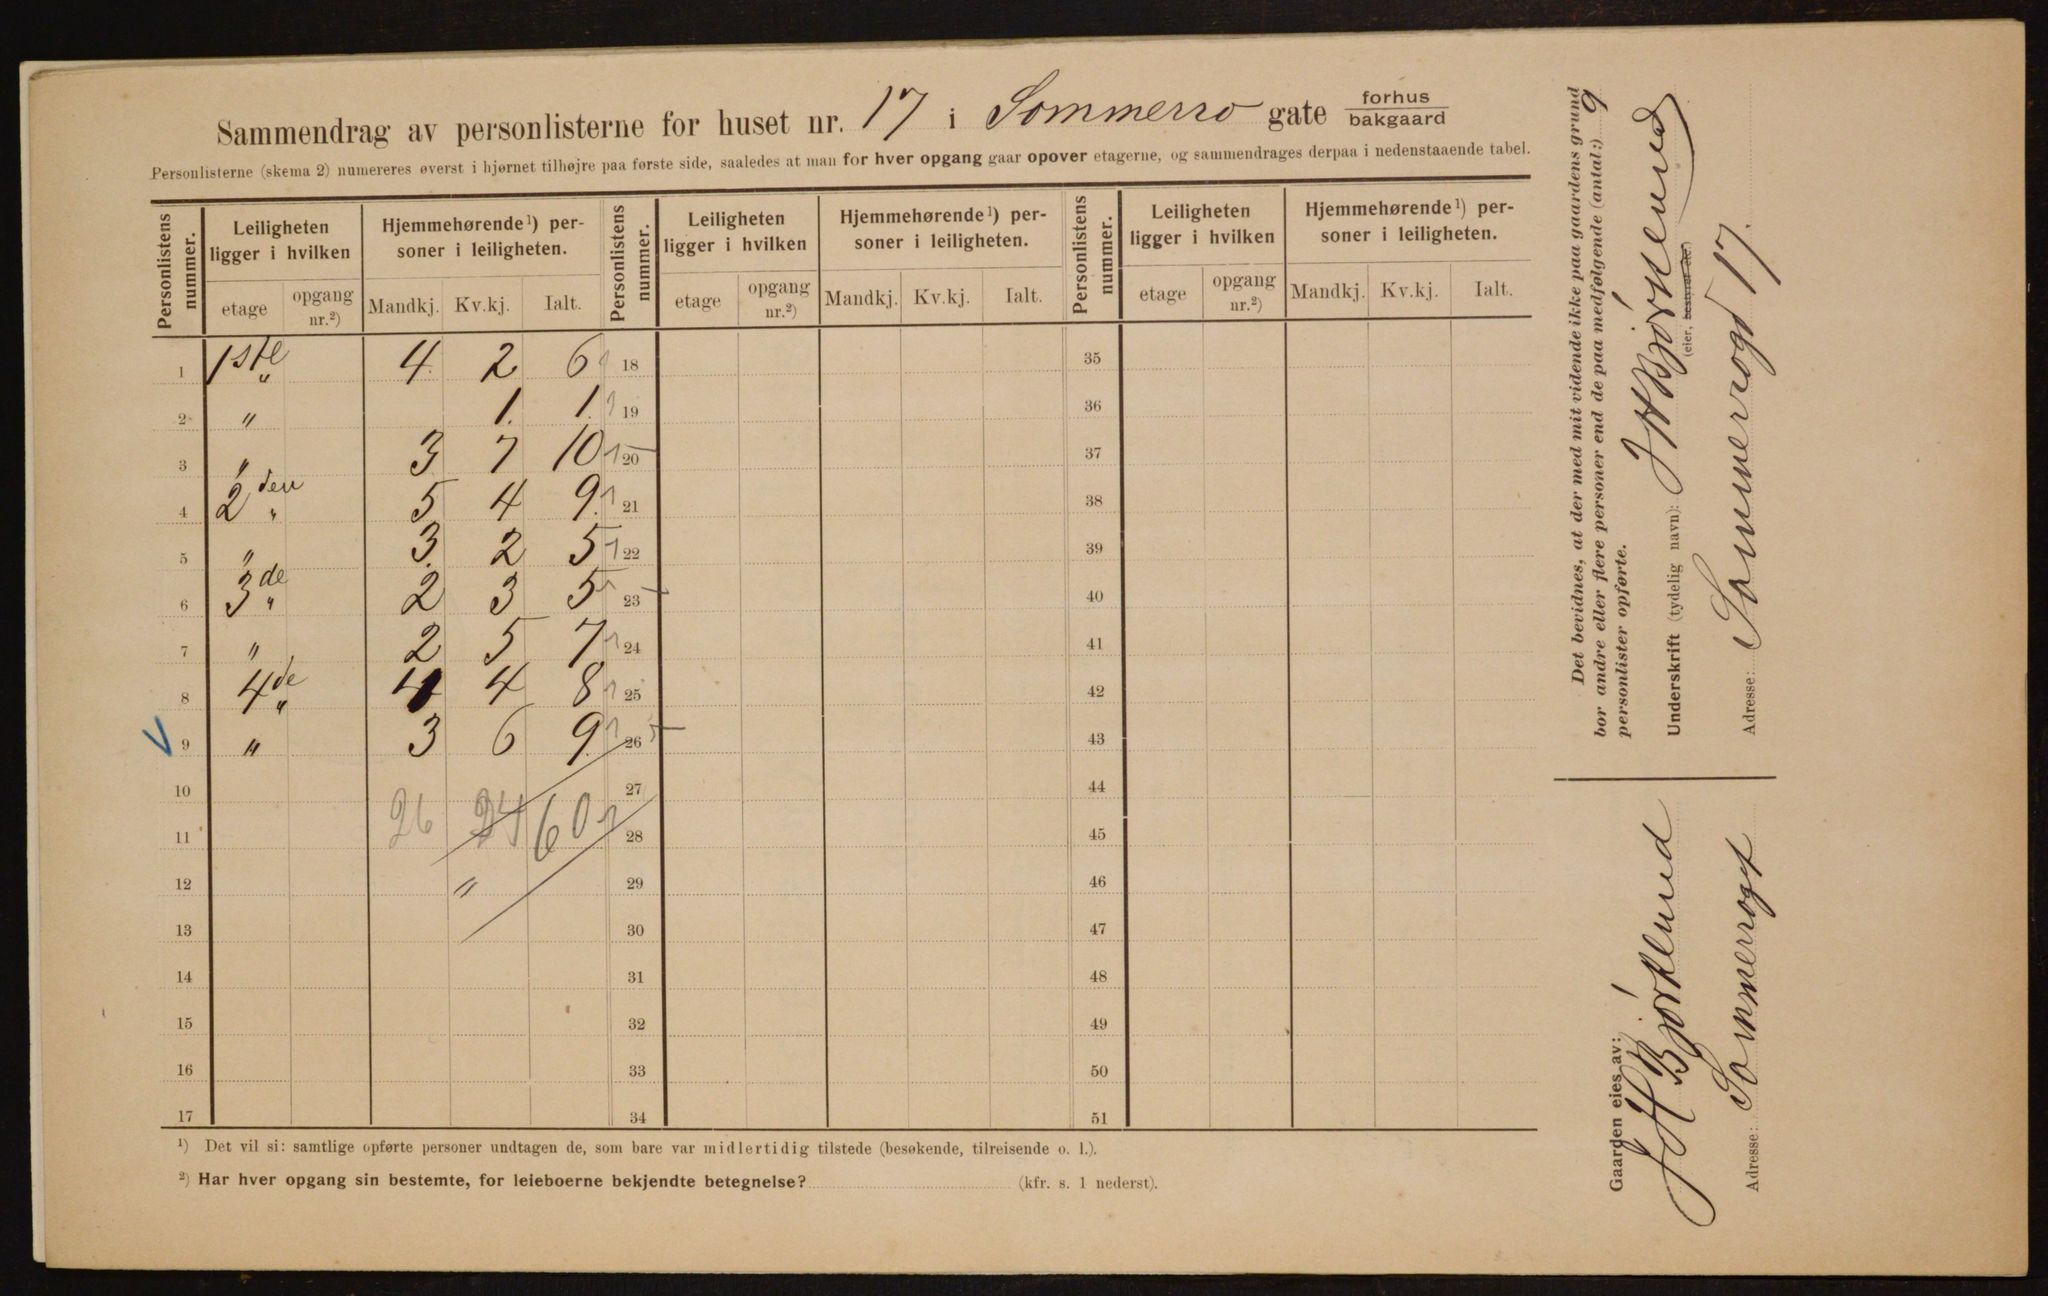 Sammendrag av personlisterne for huset nr. 17 i Sommerro gate forhus bakgaard
Personlisterne (skema 2) numereres øverst i hjørnet tilhøjre paa første side, saaledes at man for hver opgang gaar opover etagerne, og sammendrages derpaa i nedenstaaende tabel.
Personlistens nummer. Leiligheten ligger i hvilken Hjemmehørende¹) personer i leiligheten. Personlistens nummer. Leiligheten ligger i hvilken Hjemmehørende¹) personer i leiligheten. Personlistens nummer. Leiligheten ligger i hvilken Hjemmehørende¹) personer i leiligheten.
etage opgang nr.²) Mandkj. Kv.kj. Ialt. etage opgang nr.²) Mandkj. Kv.kj. Ialt. etage opgang nr.²) Mandkj. Kv.kj. Ialt.
1 1ste " 4 2 6 18 35
2 " 1. 1. 19 36
3 " 3 7 10 20 37
4 2den " 5 4 9. 21 38
5 " 3. 2 5 22 39
6 3de " 2 3 5 23 40
7 " 2 5 7 24 41
8 4de " 4 4 8 25 42
9 " 3 6 9. 26 43
10 27 44
11 26 34 60 28 45
12 " 29 46
13 30 47
14 31 48
15 32 49
16 33 50
17 34 51
¹) Det vil si: samtlige opførte personer undtagen de, som bare var midlertidig tilstede (besøkende, tilreisende o. l.).
²) Har hver opgang sin bestemte, for leieboerne bekjendte betegnelse? (kfr. s. 1 nederst).
Det bevidnes, at der med mit vidende ikke paa gaardens grund
bor andre eller flere personer end de paa medfølgende (antal:) 9
personlister opførte.
Underskrift (tydelig navn): J H Bjørklund
(eier, bestyrer etc.)
Adresse: Sommerrogd 17.
Gaarden eies av:
J H Bjørklund
Adresse: Sommerrogt